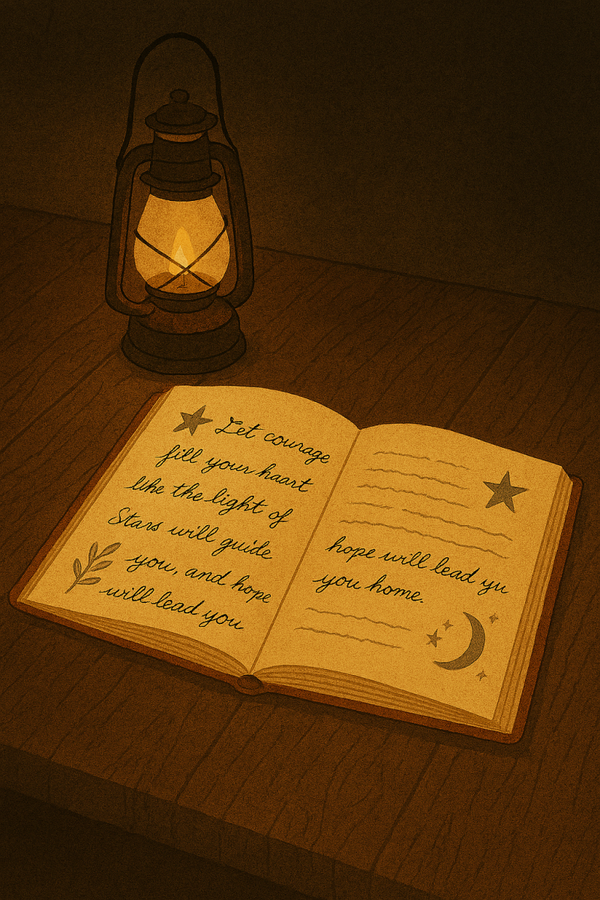 Let courage
fill your haart
like the light of
Stars will guide
you, and hope
will lead you
hope will lead yu
you home.